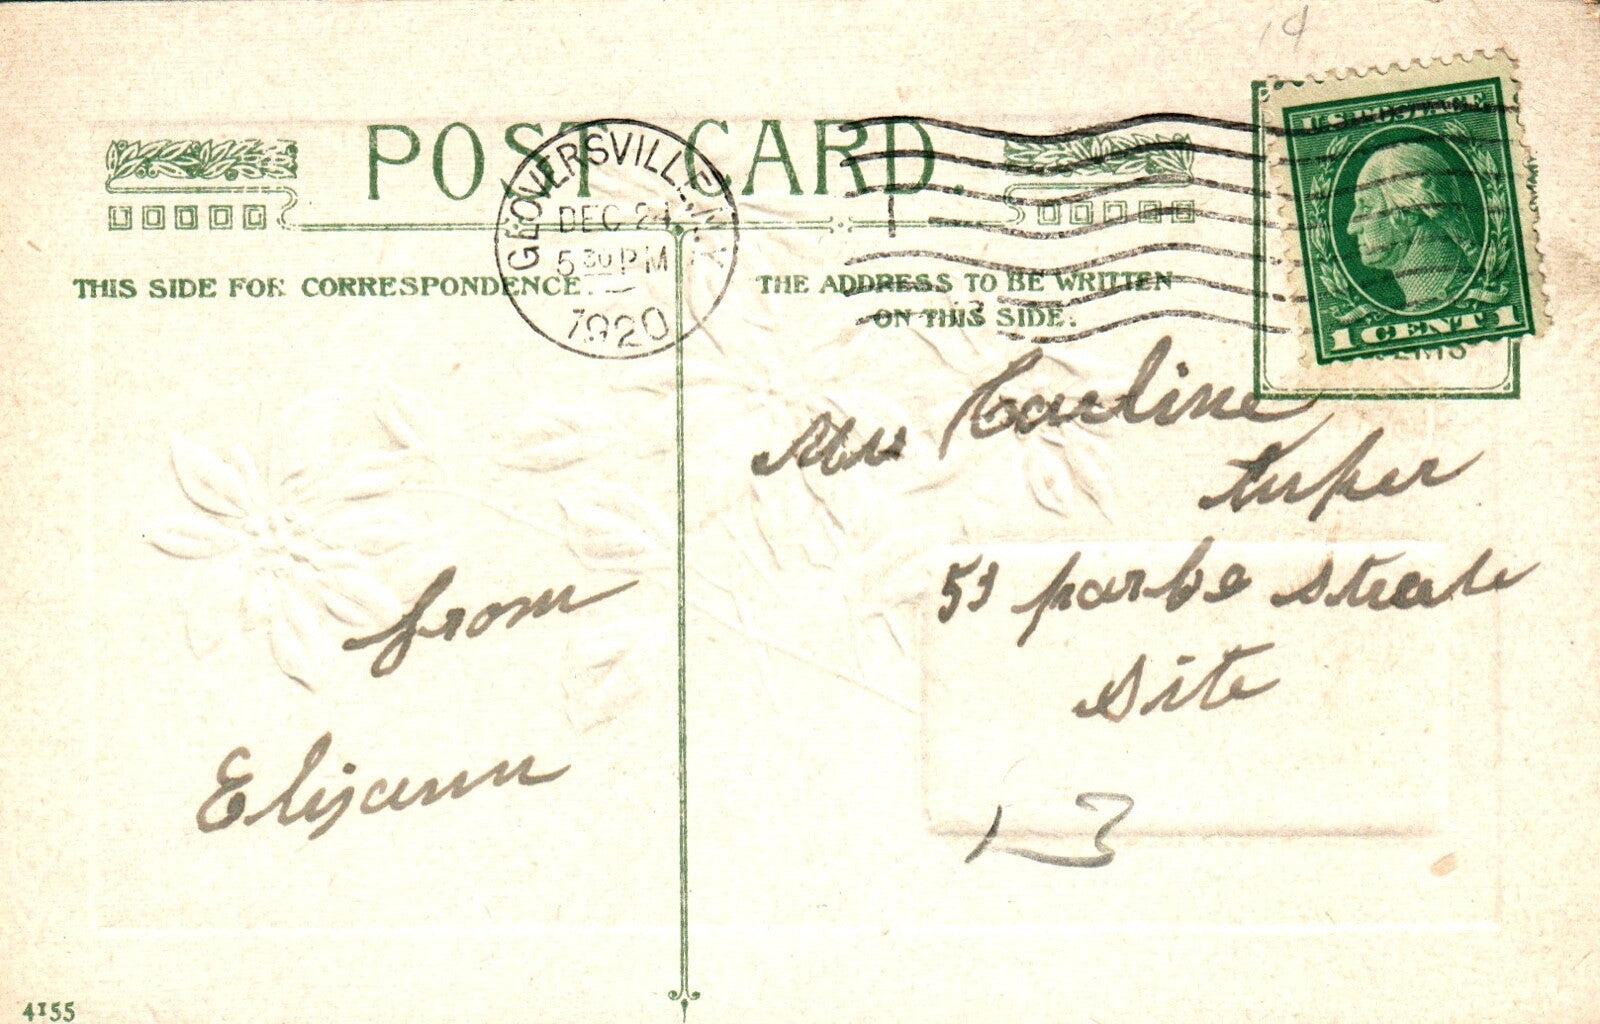 POST CARD.
GLOVERSVILLE, N.Y.
DEC 24
5 30 PM
1920
THIS SIDE FOR CORRESPONDENCE.
THE ADDRESS TO BE WRITTEN
ON THIS SIDE.
U.S. POSTAGE
1 CENT 1
14
Mrs Carline
53
Site
from
Elizann
13
4155